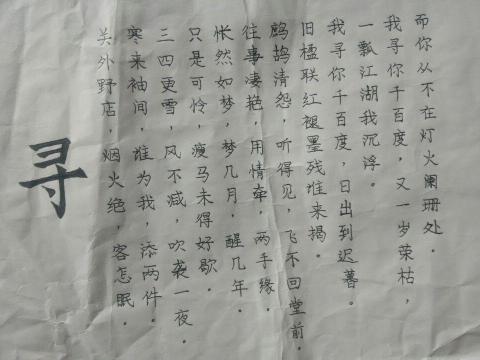 寻
关外野店，烟火绝，客怎眠．
寒来袖间，谁为我，添两件．
三四更雪，风不减，吹袭一夜．
只是可怜，瘦马未得好歇．
怅然如梦，梦几月，醒几年．
往事凄艳，用情牵，两手缘．
鹧鸪清怨，听得见，飞不回堂前．
旧楹联红褪墨残谁来揭．
我寻你千百度，日出到迟暮．
一瓢江湖我沉浮．
我寻你千百度，又一岁荣枯，
而你从不在灯火阑珊处．